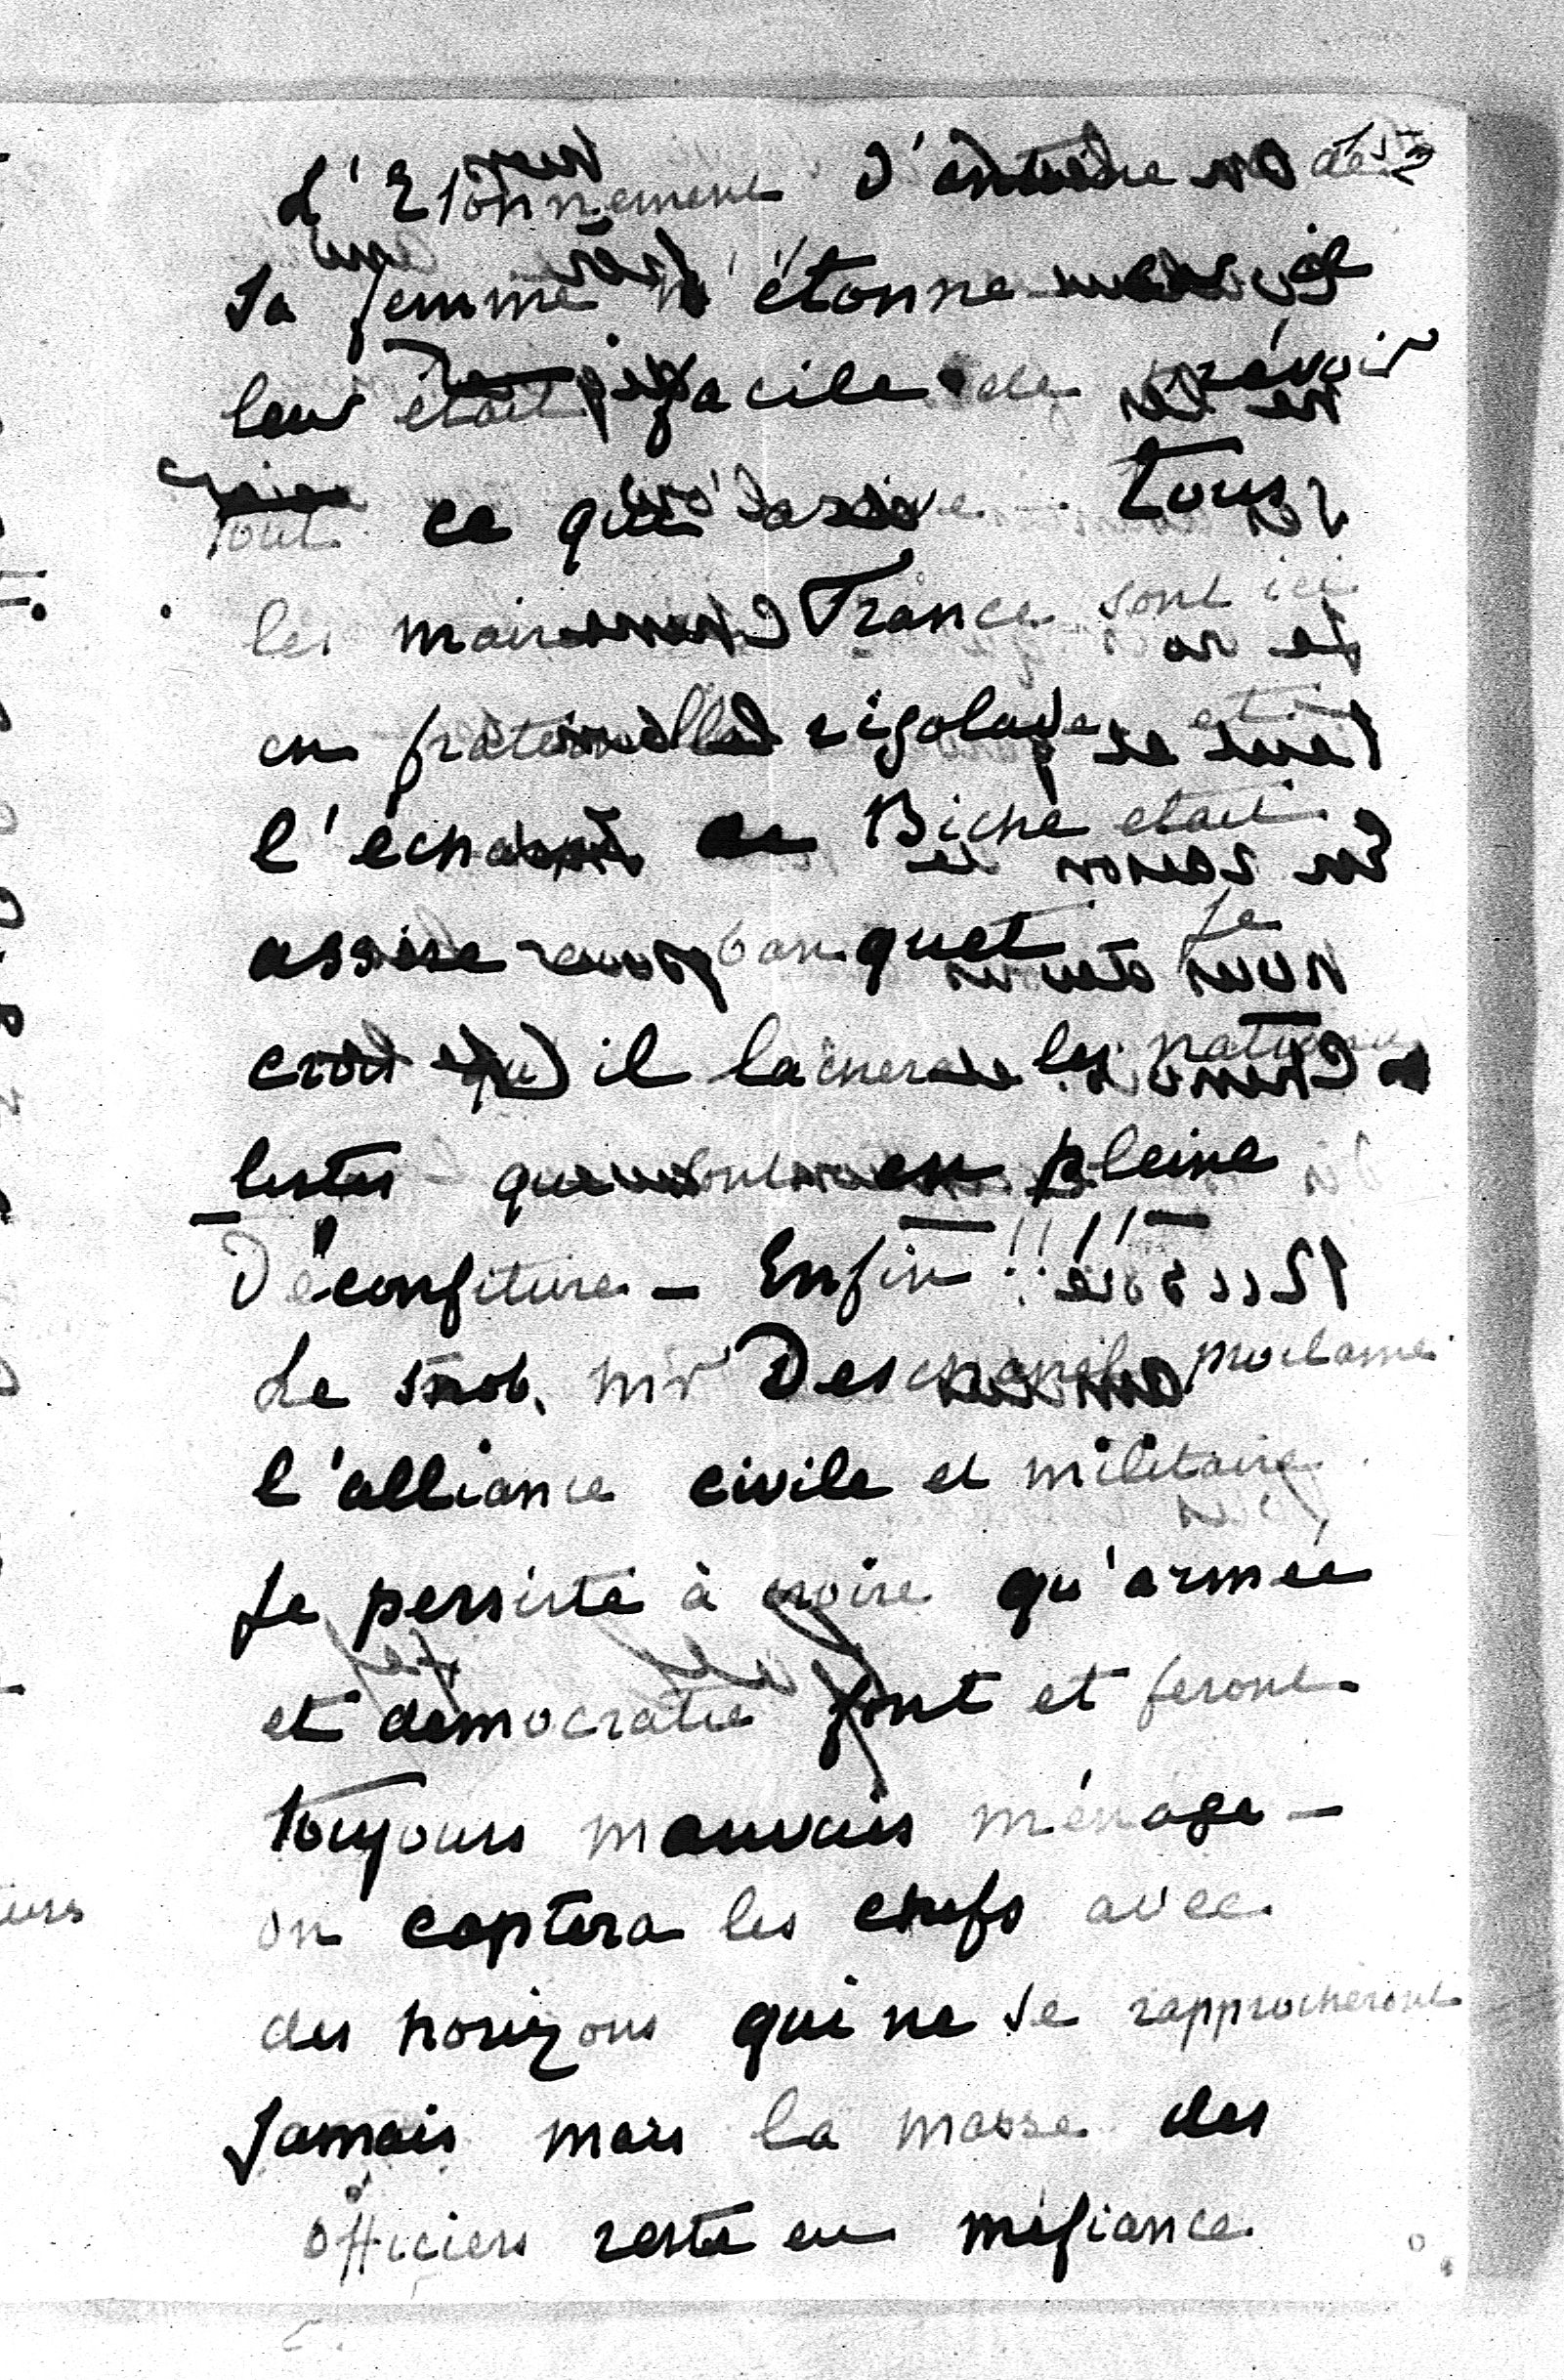 L'Etonnement d'antoine et de
sa femme m'étonne il
leur était facile de prévoir
tout ce qui arrive - Tous
les maires de France sont ici
en fraternelle rigolade et
l'écharpe de Biche etait
assise au banquet - Je
crois qu'il lachera les nationa
listes qui sont en pleine
Déconfiture - Enfin !!!!
Le snob, mr Deschanel proclame
l'alliance civile et militaire
Je persiste à croire qu'armée
et démocratie font et feront
toujours mauvais ménage -
on captera les chefs avec
des horizons qui ne se rapprocheront
Jamais mais la masse des
officiers reste en méfiance